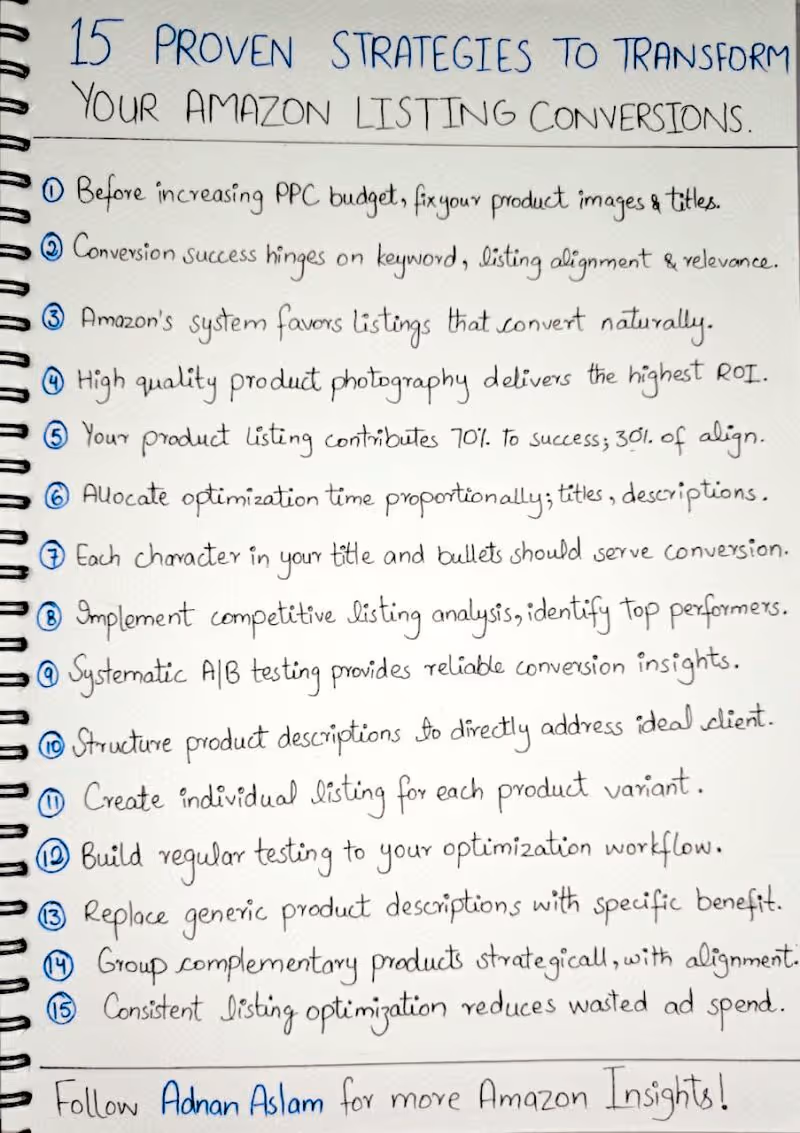 15 PROVEN STRATEGIES TO TRANSFORM
YOUR AMAZON LISTING CONVERSIONS.
① Before increasing PPC budget, fix your product images & titles.
② Conversion success hinges on keyword, listing alignment & relevance.
③ Amazon's system favors listings that convert naturally.
④ High quality product photography delivers the highest ROI.
⑤ Your product listing contributes 70% to success; 30% of align.
⑥ Allocate optimization time proportionally; titles, descriptions.
⑦ Each character in your title and bullets should serve conversion.
⑧ Implement competitive listing analysis, identify top performers.
⑨ Systematic A/B testing provides reliable conversion insights.
⑩ Structure product descriptions to directly address ideal client.
⑪ Create individual listing for each product variant.
⑫ Build regular testing to your optimization workflow.
⑬ Replace generic product descriptions with specific benefit.
⑭ Group complementary products strategicall, with alignment.
⑮ Consistent listing optimization reduces wasted ad spend.
Follow Adnan Aslam for more Amazon Insights!